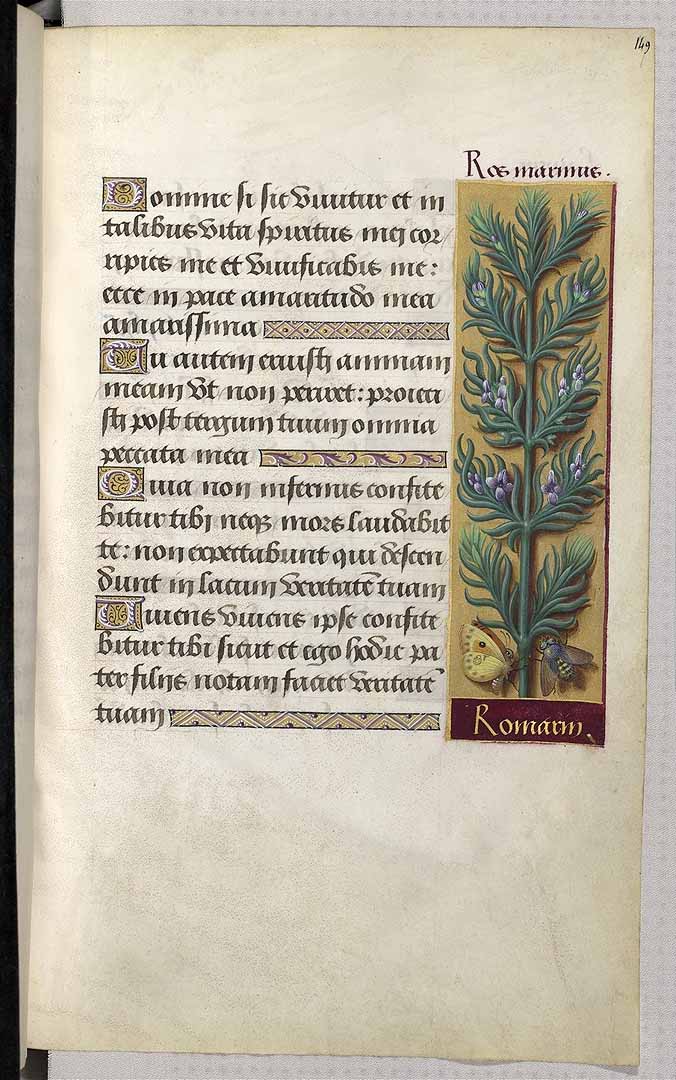 149
Ros marinus.
Domine si sic vivitur et in
talibus vita spiritus mei cor
ripies me et vivificabis me:
ecce in pace amaritudo mea
amarissima
Tu autem eruisti animam
meam vt non periret: proieci
sti post tergum tuum omnia
peccata mea
Quia non infernus confite
bitur tibi neqz mors laudabit
te: non expectabunt qui descen
dunt in lacum veritatē tuam
Vivens vivens ipse confite
bitur tibi sicut et ego hodie pa
ter filiis notam faciet veritatē
tuam
Romarin.